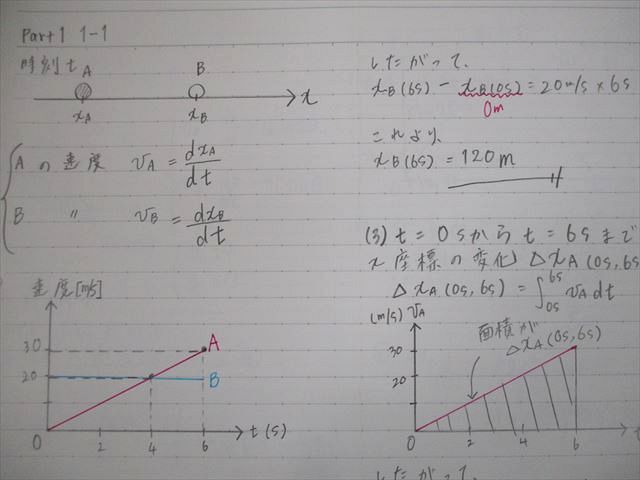 Part1 1-1
時刻 t
A B
x
xA xB
Aの速度 vA = dxA/dt
B 〃 vB = dxB/dt
速度[m/s]
30
20
A
B
0 2 4 6 t(s)
したがって、
xB(6s) - xB(0s) = 20m/s × 6s
0m
これより、
xB(6s) = 120m
(3) t = 0sから t = 6sまで
x座標の変化 ΔxA(0s, 6s
ΔxA(0s, 6s) = ∫0s6s vA dt
(m/s) vA
面積が
ΔxA(0s, 6s)
30
20
0 2 4 6 t
したがって、